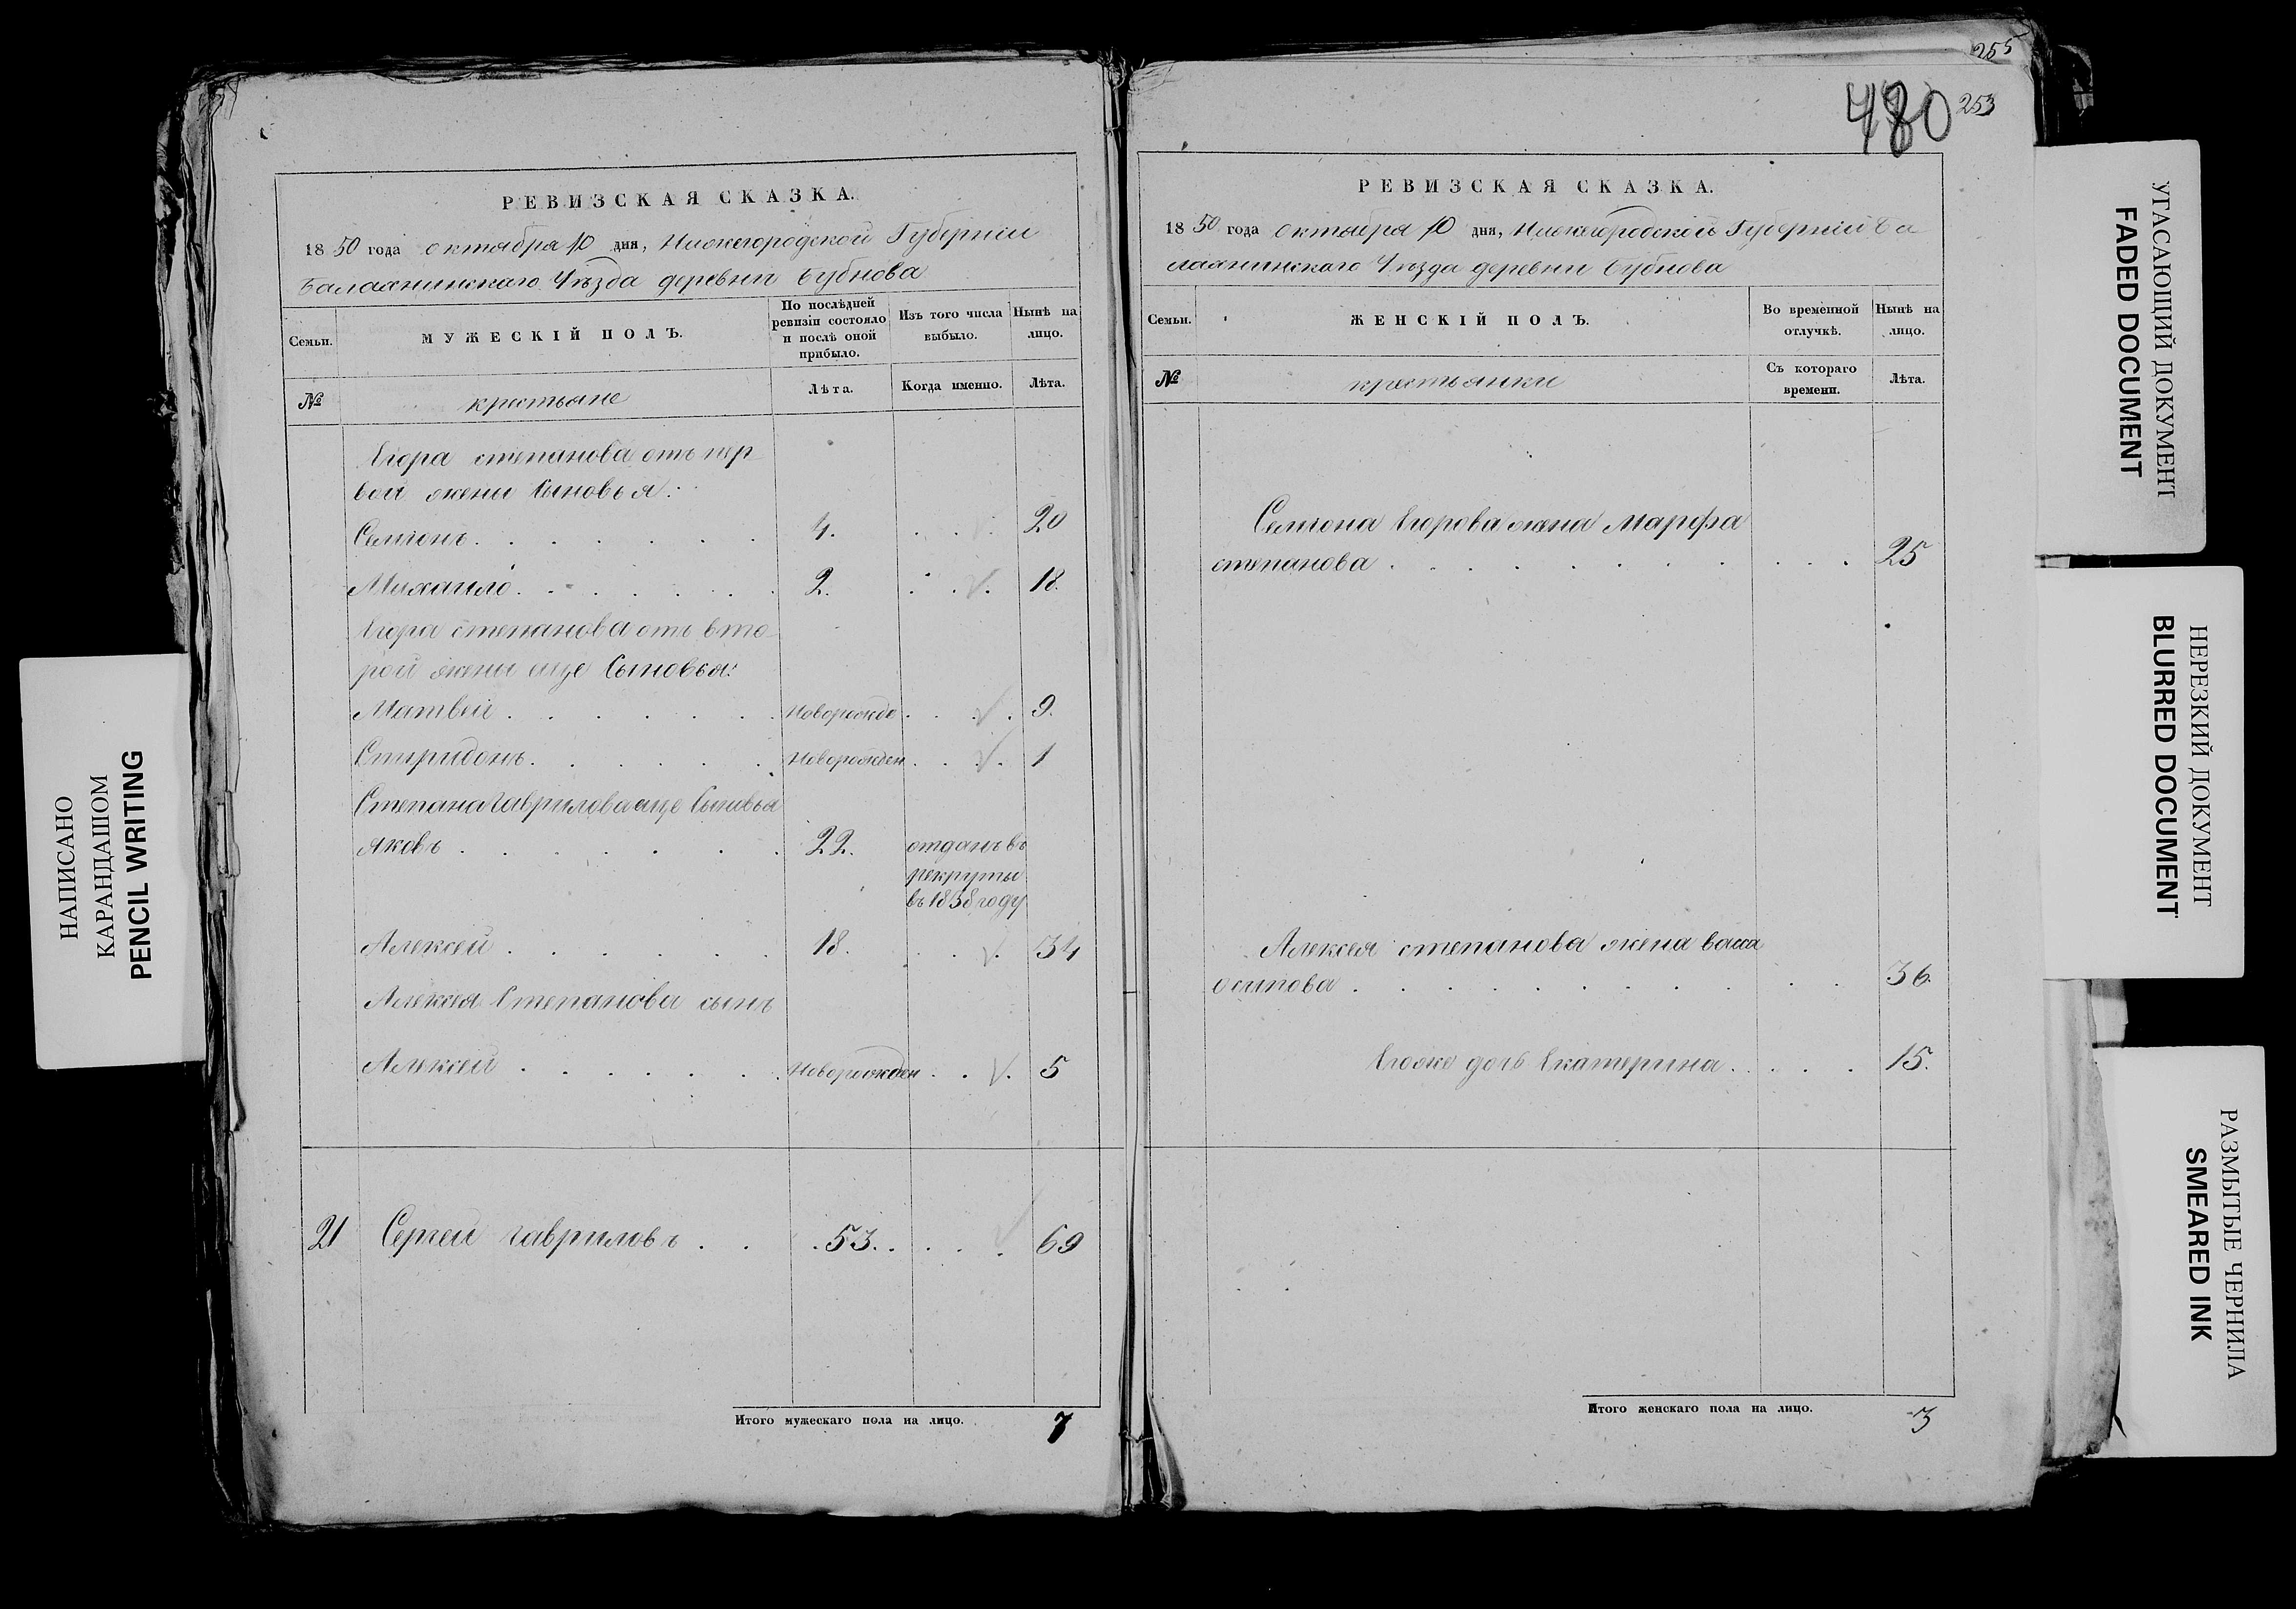 255
480 253
РЕВИЗСКАЯ СКАЗКА.
1850 года октября 10 дня, Нижегородской Губернии
Балахнинскаго Уѣзда деревни Бубнова
Семьи.
МУЖЕСКІЙ ПОЛЪ.
По послѣдней
ревизіи состояло
и послѣ оной
прибыло.
Изъ того числа
выбыло.
Нынѣ на
лицо.
№
крестьяне
Лѣта.
Когда именно.
Лѣта.
Егора степанова отъ пер
вой жены Сыновья:
Семіонъ . . . . . . . 4. . . . 20
Михаило . . . . . . . 2. . . . 18.
Егора степанова отъ вто
рой жены еще Сыновья:
Матвей . . . . . . . Новорожде . . . 9.
Спиридонъ . . . . . . Новорожден . . . 1
Степана Гаврилова еще Сыновья
Яковъ . . . . . . . 22. отданъ въ
рекруты
въ 1838 году
Алексей . . . . . . 18. . . . 34
Алексея Степанова сынъ
Алексей . . . . . . Новорожден . . . 5
21 Сергей гавриловъ . . . 53. . . . . 69
Итого мужескаго пола на лицо. 7
РЕВИЗСКАЯ СКАЗКА.
1850 года октября 10 дня, Нижегородской Губернии Ба
лахнинскаго Уѣзда деревни Бубнова
Семьи.
ЖЕНСКІЙ ПОЛЪ.
Во временной
отлучкѣ.
Нынѣ на
лицо.
№
крестьянки
Съ котораго
времени.
Лѣта.
Семіона Егорова жена Марфа
степанова . . . . . . . . . . . 25
Алексея степанова жена васса
осипова . . . . . . . . . . 36.
Егоже дочь Екатерина . . . . 15.
Итого женскаго пола на лицо. 3
НАПИСАНО
КАРАНДАШОМ
PENCIL WRITING
УГАСАЮЩИЙ ДОКУМЕНТ
FADED DOCUMENT
НЕРЕЗКИЙ ДОКУМЕНТ
BLURRED DOCUMENT
РАЗМЫТЫЕ ЧЕРНИЛА
SMEARED INK